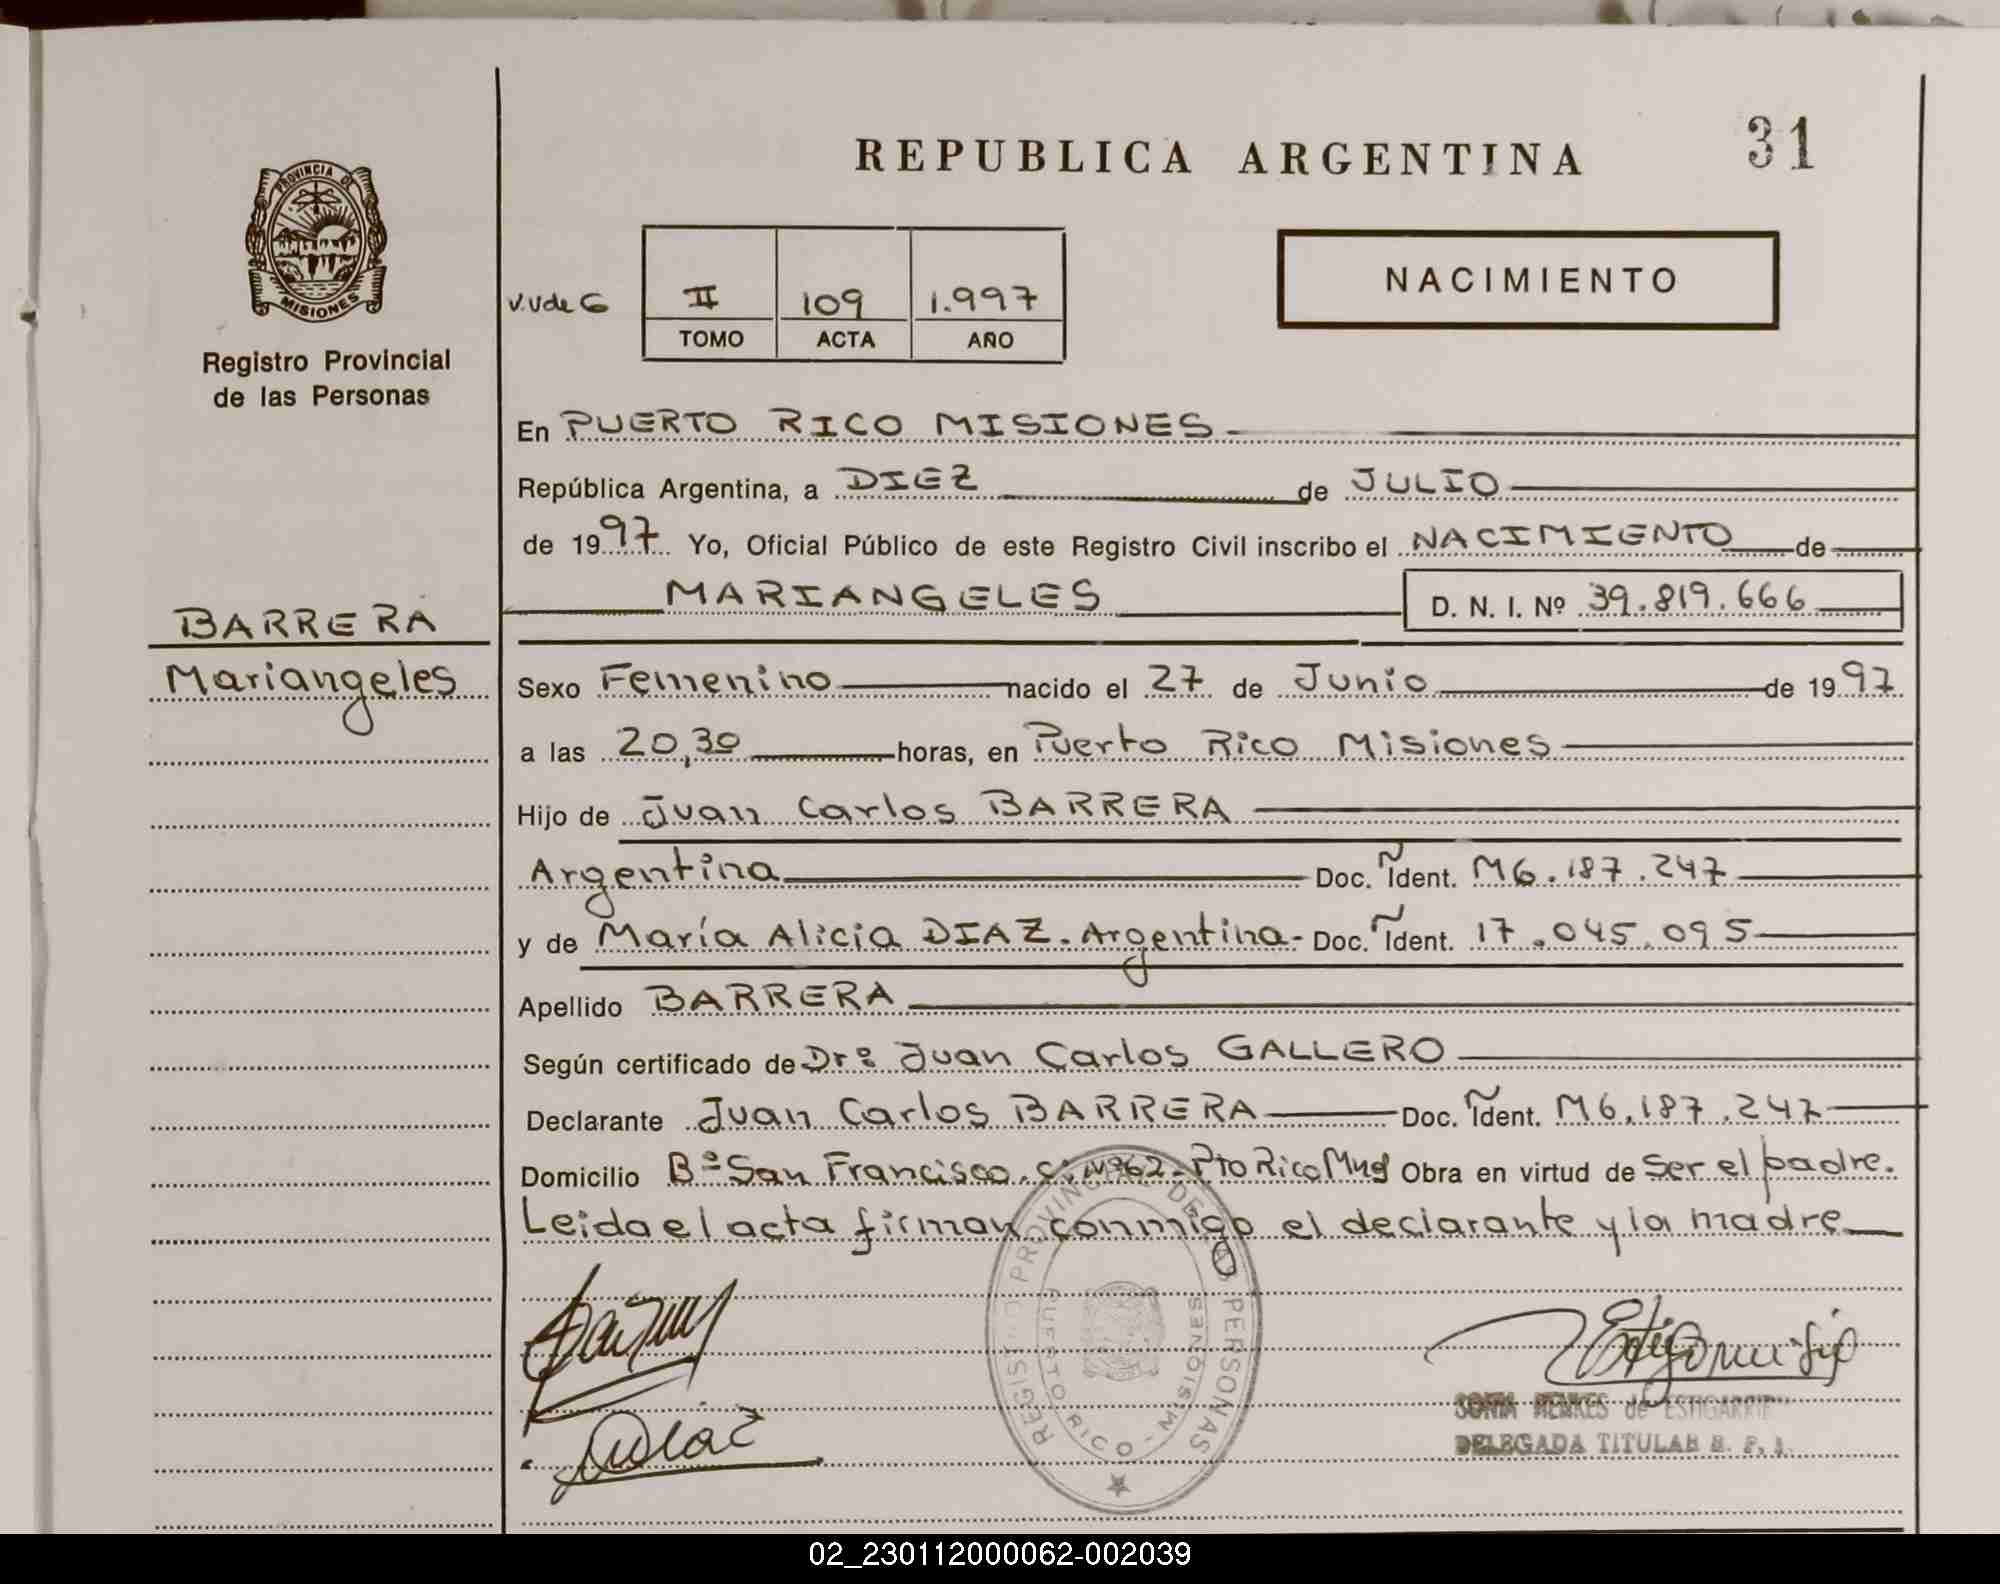 REPUBLICA ARGENTINA
31
PROVINCIA DE
MISIONES
Registro Provincial
de las Personas
II 109 1.997
TOMO ACTA AÑO
NACIMIENTO
En PUERTO RICO MISIONES
República Argentina, a DIEZ de JULIO
de 1997 Yo, Oficial Público de este Registro Civil inscribo el NACIMIENTO de
MARIANGELES D. N. I. Nº 39.819.666
BARRERA
Mariangeles
Sexo Femenino nacido el 27 de Junio de 1997
a las 20,30 horas, en Puerto Rico Misiones
Hijo de Juan Carlos BARRERA
Argentina Doc. Ident. M6.187.247
y de María Alicia DIAZ. Argentina- Doc. Ident. 17.045.095
Apellido BARRERA
Según certificado de Drº Juan Carlos GALLERO
Declarante Juan Carlos BARRERA Doc. Ident. M6.187.247
Domicilio Bº San Francisco. Pto Rico Obra en virtud de Ser el padre.
Leida el acta firman conmigo el declarante y la madre
REGISTRO PROVINCIAL DE LAS PERSONAS
PUERTO RICO - MISIONES
Diaz
SONIA MENKES de ESTIGARRIBIA
DELEGADA TITULAR R. P. P.
02_230112000062-002039